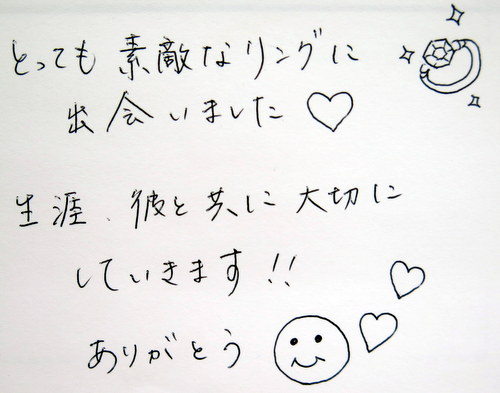 とっても 素敵なリングに
出会いました♡
生涯、彼と共に 大切に
していきます!!
ありがとう